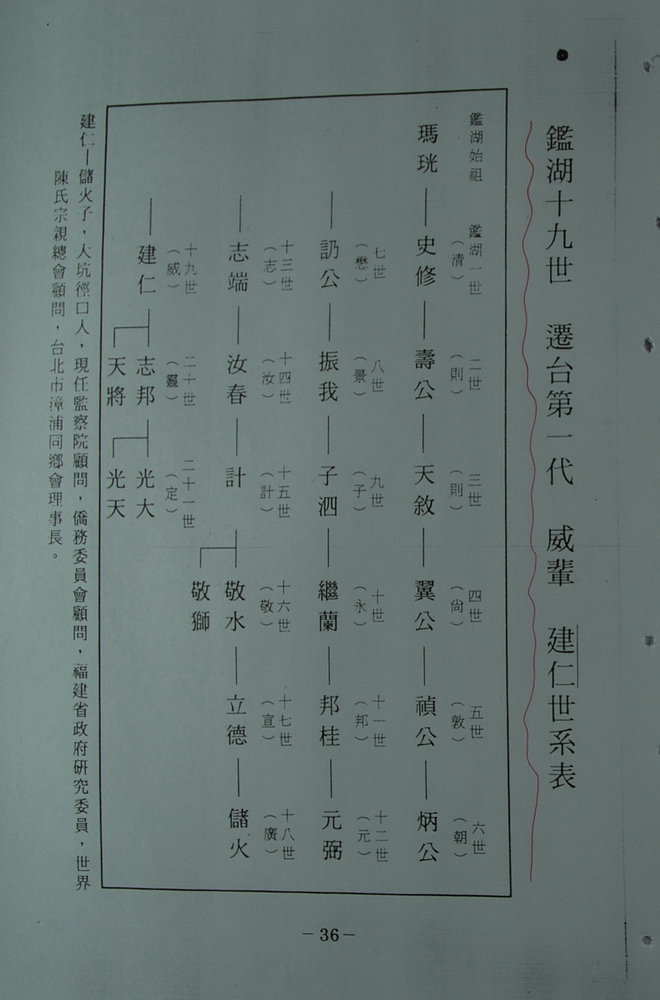 鑑湖十九世　遷台第一代　威輩　建仁世系表
鑑湖始祖　鑑湖一世（清）　二世（則）　三世（則）　四世（尚）　五世（敦）　六世（朝）
瑪珖—史修—壽公—天敘—翼公—禎公—炳公
七世（懋）　八世（景）　九世（子）　十世（永）　十一世（邦）　十二世（元）
—訒公—振我—子泗—繼蘭—邦桂—元弼
十三世（志）　十四世（汝）　十五世（計）　十六世（敬）　十七世（宣）　十八世（廣）
—志端—汝春—計—敬水—立德—儲火
敬獅
十九世（威）　二十世（靈）　二十一世（定）
—建仁—志邦—光大
天將　光天
建仁—儲火子，大坑徑口人，現任監察院顧問，僑務委員會顧問，福建省政府研究委員，世界
陳氏宗親總會顧問，台北市漳浦同鄉會理事長。
－36－